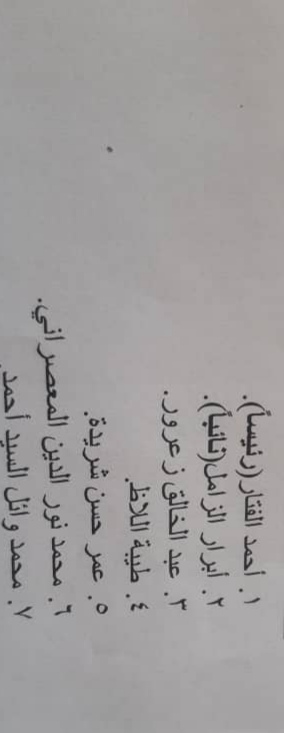 ١. أحمد الفتار (رئيساً).
٢. أبرار الزامل (نائباً).
٣. عبد الخالق زعرور.
٤. طيبة اللاظ.
٥. عمر حسن شريدة.
٦. محمد نور الدين المعصراني.
٧. محمد وائل السيد أحمد.